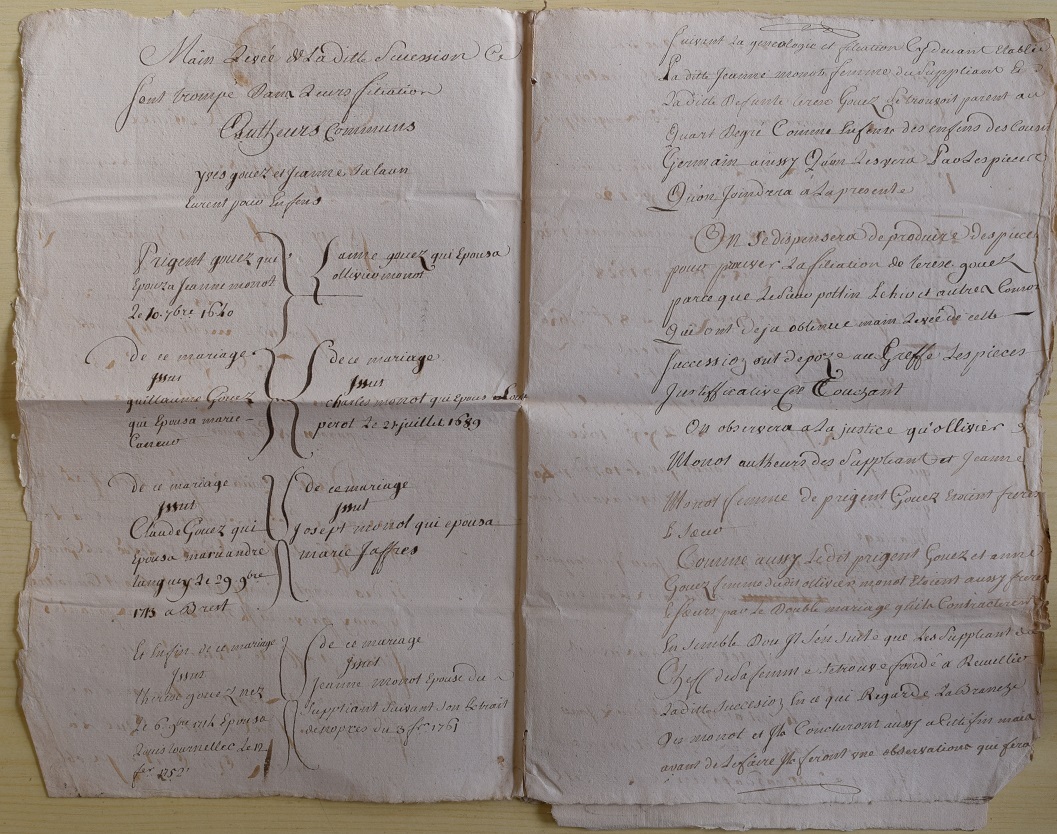 Main Levée de La ditte Sucession Ce
sont trompé Dans Leurs filiation
Autheurs Communs
yves gouez et Jeanne Salaun
Eurent pour Enfens
Prigent gouez qui
Epouza Jeanne monot
Le 10. 7bre 1640
anne gouez qui Epousa
ollivier monot
de ce mariage
Jssut
guillaume Gouez
qui Epousa marie
de ce mariage
Jssut
charles monot qui Epousa
perot Le 21 juillet 1689
de ce mariage
Jssut
Claude Gouez qui
Epousa marie andre
tanguy Le 29 9bre
1713 a Brest
de ce mariage
Jssut
Joseph monot qui epousa
marie Jaffres
Et Enfin de ce mariage
Jssus
therese gouez nez
Le 6 9bre 1714 Epousa
Louis tournellec Le 12
fer 1752
de ce mariage
Jssut
Jeanne monot Epouse du
Suppliant suivant son Extrait
de nopces du 3 fer 1761
suivent La genealogie et filiation Cy devant Etablie
La ditte Jeanne monot femme du Suppliant Et
La ditte Defunte terese Gouez se trouvoit parent au
Quart Degré Comme Enfens des enfens des Cousin
Germain ainssy Qu'on Les vera Par Les pieces
Qu'on Joindra a La presente
On se dispensera de produire des pieces
pour prouver La filiation de terese gouez
parce que Le Sieur pottin Le hir et autres Consor
Qui ont deja obtenue main Levée de cette
succession ont depozé au Greffe Les pieces
Justifficative Le Touchant
On observera a La justice qu'ollivier
Monot autheurs des Suppliant et Jeanne
Monot femme de prigent Gouez Etoient freres
& sœur
Comme aussy Ledit prigent Gouez et anne
Gouez femme dudit ollivier monot Etoient aussy freres
& sœurs par Le Double mariage qu'ils Contracterent
Ensemble Dou Jl s'en suite que Les Suppliant au
Cheff de sa femme se trouve fondé a Recuellir
La ditte Succesion En ce qui Regarde La Branche
Des monot et Jls Concluront aussy a cette fin mais
avant de Le faire Jls feront une observations qui fera